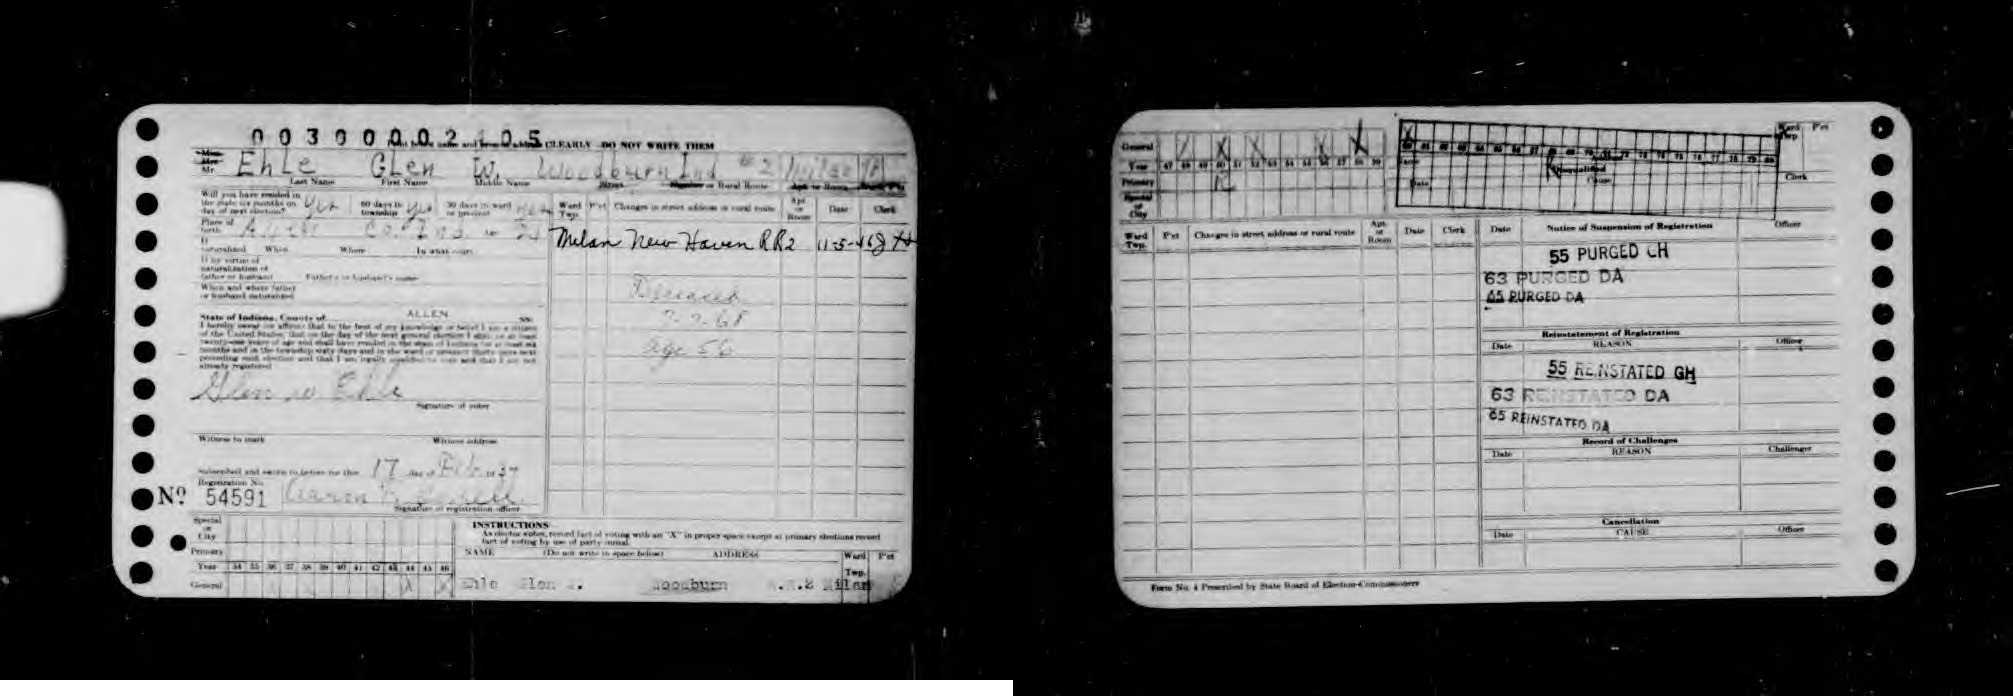 00300002 05
Print below name and address CLEARLY—DO NOT WRITE THEM
Miss
Mrs
Mr Ehle Glen W. Woodburn Ind #2 Milan
Last Name First Name Middle Name Street Number or Rural Route Apt. or Room
Will you have resided in the state six months on day of next election? Yes 60 days in township yes 30 days in ward or precinct yes
Ward Twp. P'ct Changes in street address or rural route Apt. or Room Date Clerk
Place of birth Allen Co. Ind.
Milan New Haven RR2 11-5-46
If naturalized When Where In what court
If by virtue of naturalization of father or husband Father's or husband's name
When and where father or husband naturalized
Deceased
68
age 56
State of Indiana, County of ALLEN ss:
I hereby swear (or affirm) that to the best of my knowledge or belief I am a citizen
of the United States, that on the day of the next general election I shall be at least
twenty-one years of age and shall have resided in the state of Indiana for at least six
months and in the township sixty days and in the ward or precinct thirty days next
preceding such election and that I am legally qualified to vote and that I am not
already registered
Glen W Ehle
Signature of voter
Witness to mark Witness address
Subscribed and sworn to before me this 17 day of Feb 19 37
Registration No.
No 54591
Signature of registration officer
Special or City
Primary
Year 34 35 36 37 38 39 40 41 42 43 44 45 46
General X X
INSTRUCTIONS
As elector votes, record fact of voting with an "X" in proper space except at primary elections record
fact of voting by use of party initial.
NAME (Do not write in space below) ADDRESS Ward Twp. P'ct
Ehle Glen W. Woodburn R.R.2 Milan
General X X X X
Year 47 48 49 50 51 52 53 54 55 56 57 58 59
Primary R
Special or City
X
60 61 62 63 64 65 66 67 68 69 70 71 72 73 74 75 76 77 78 79 80
Name
Disqualified
Date Cause
Ward Twp P'ct
Clerk
Ward Twp. P'ct Changes in street address or rural route Apt. or Room Date Clerk
Date Notice of Suspension of Registration Officer
55 PURGED CH
63 PURGED DA
65 PURGED DA
Reinstatement of Registration
Date REASON Officer
55 REINSTATED GH
63 REINSTATED DA
65 REINSTATED DA
Record of Challenges
Date REASON Challenger
Cancellation
Date CAUSE Officer
Form No. 4 Prescribed by State Board of Election Commissioners